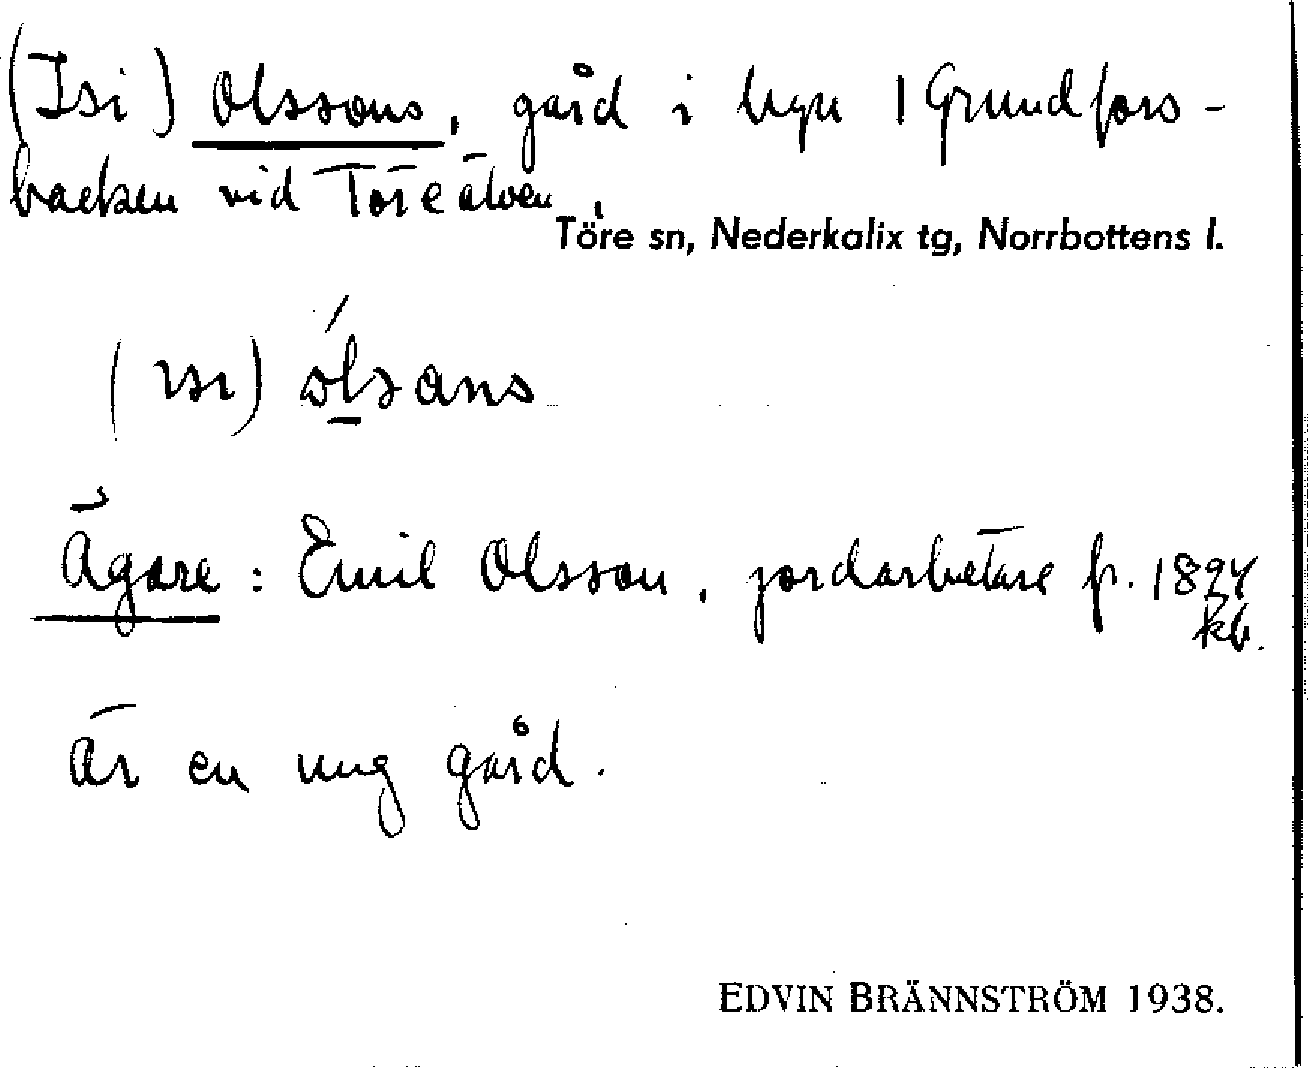 (Isi) Olssons, gård i byn | Grundfors-
backen vid Töre älven,
Töre sn, Nederkalix tg, Norrbottens l.
(ısı) ólsans
Ägare: Emil Olsson, jordarbetare fr. 1894
kb.
är en ung gård.
EDVIN BRÄNNSTRÖM 1938.